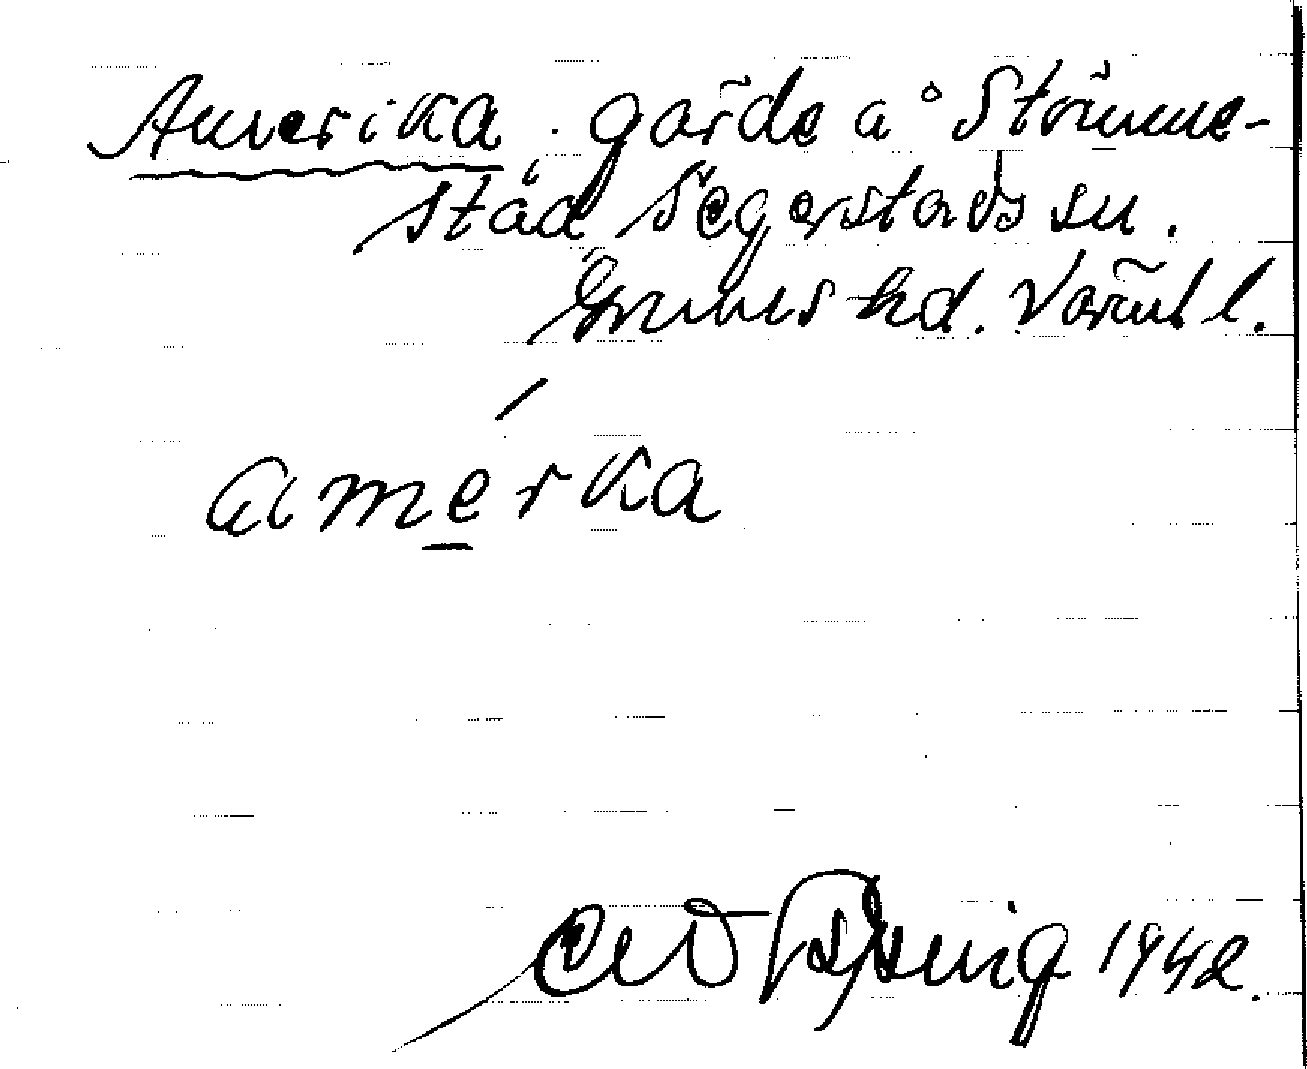 Amerika. gärde å Strömme-
städ Segerstads sn.
Grums hd. Värml.
amerka
1942.